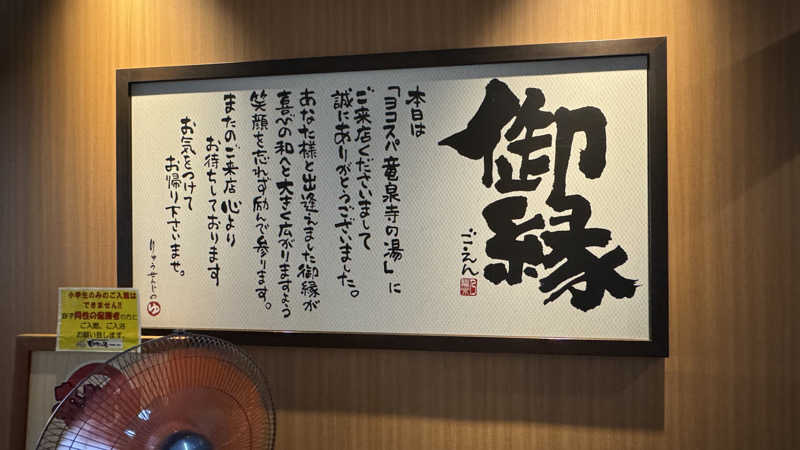 御縁
ご.えん
本日は
「ヨコスパ 竜泉寺の湯」に
ご来店くださいまして
誠にありがとうございました。
あなた様と出逢えました御縁が
喜びの和へと大きく広がりますよう
笑顔を忘れず励んで参ります。
またのご来店 心より
お待ちしております
お気をつけて
お帰り下さいませ。
りゅうせんじの ゆ
小学生のみのご入館は
できません!!
同性の保護者の方と
ご入館、ご入浴
お願い致します。